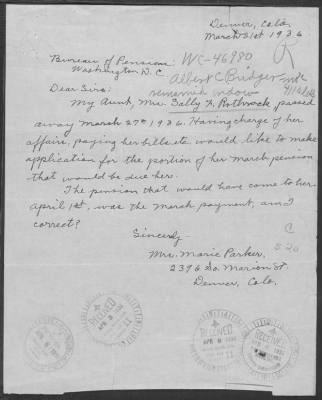 Denver, Colo.
March 31st 1936
Bureau of Pensions
Washington D.C.
WC-46980
Albert C Bridger
remarried widow
Dear Sirs:
My Aunt, Mrs. Sally A. Rothrock, passed
away March 27th 1936. Having charge of her
affairs, paying her bills etc. would like to make
application for the portion of her March pension
that would be due her.
The pension that would have come to her
April 1st, was the March payment, am I
correct?
Sincerely-
Mrs. Marie Parker,
2396 So. Marion St.
Denver, Colo.
C
RECEIVED
RECEIVED
RECEIVED